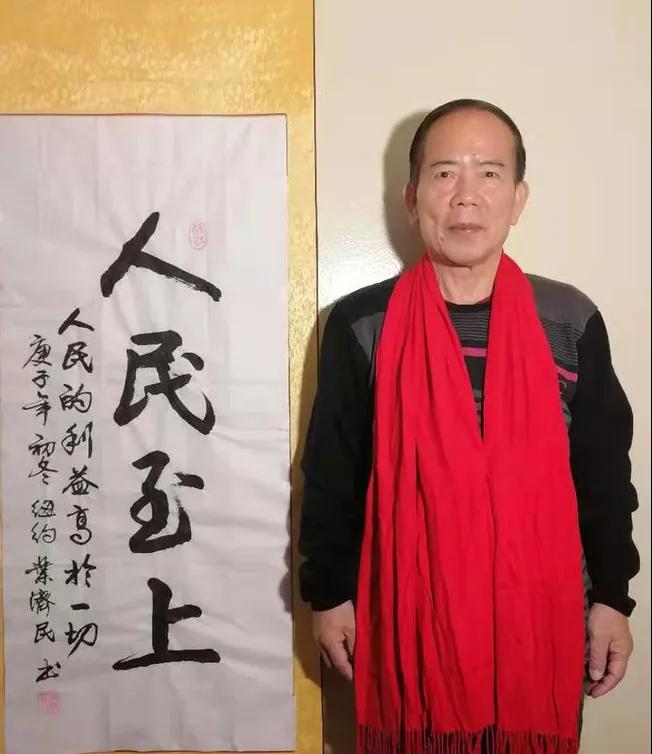 人民至上
人民的利益高於一切
庚子年初冬 纽约 葉濟民书